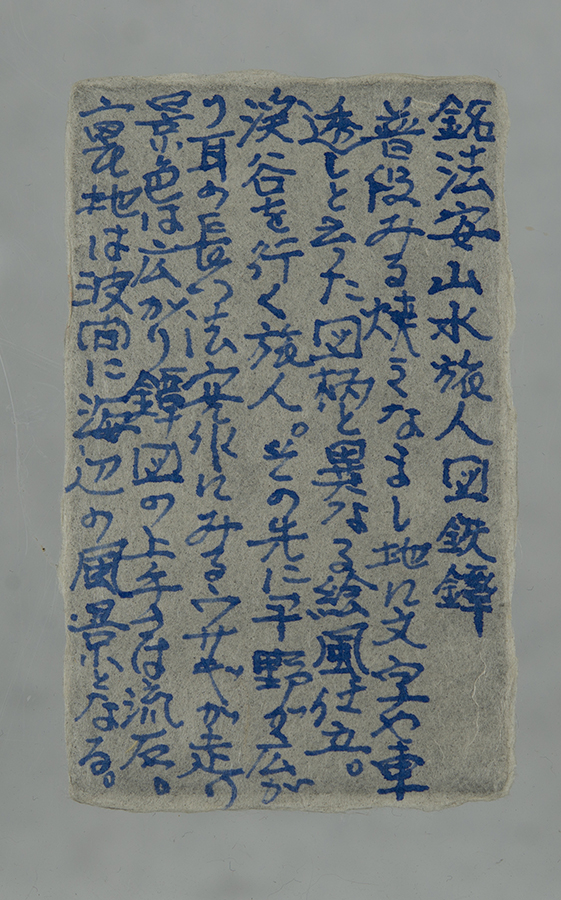 銘法安山水旅人図鉄鐔
普段みる焼きなまし地に文字や車
透しと云った図柄と異なる絵風仕立。
渓谷を行く旅人。その先に平野が広が
り耳の長い法安作にみるウサギが走り
景色は広がり鐔図の上手さは流石。
裏地は波間に海辺の風景となる。